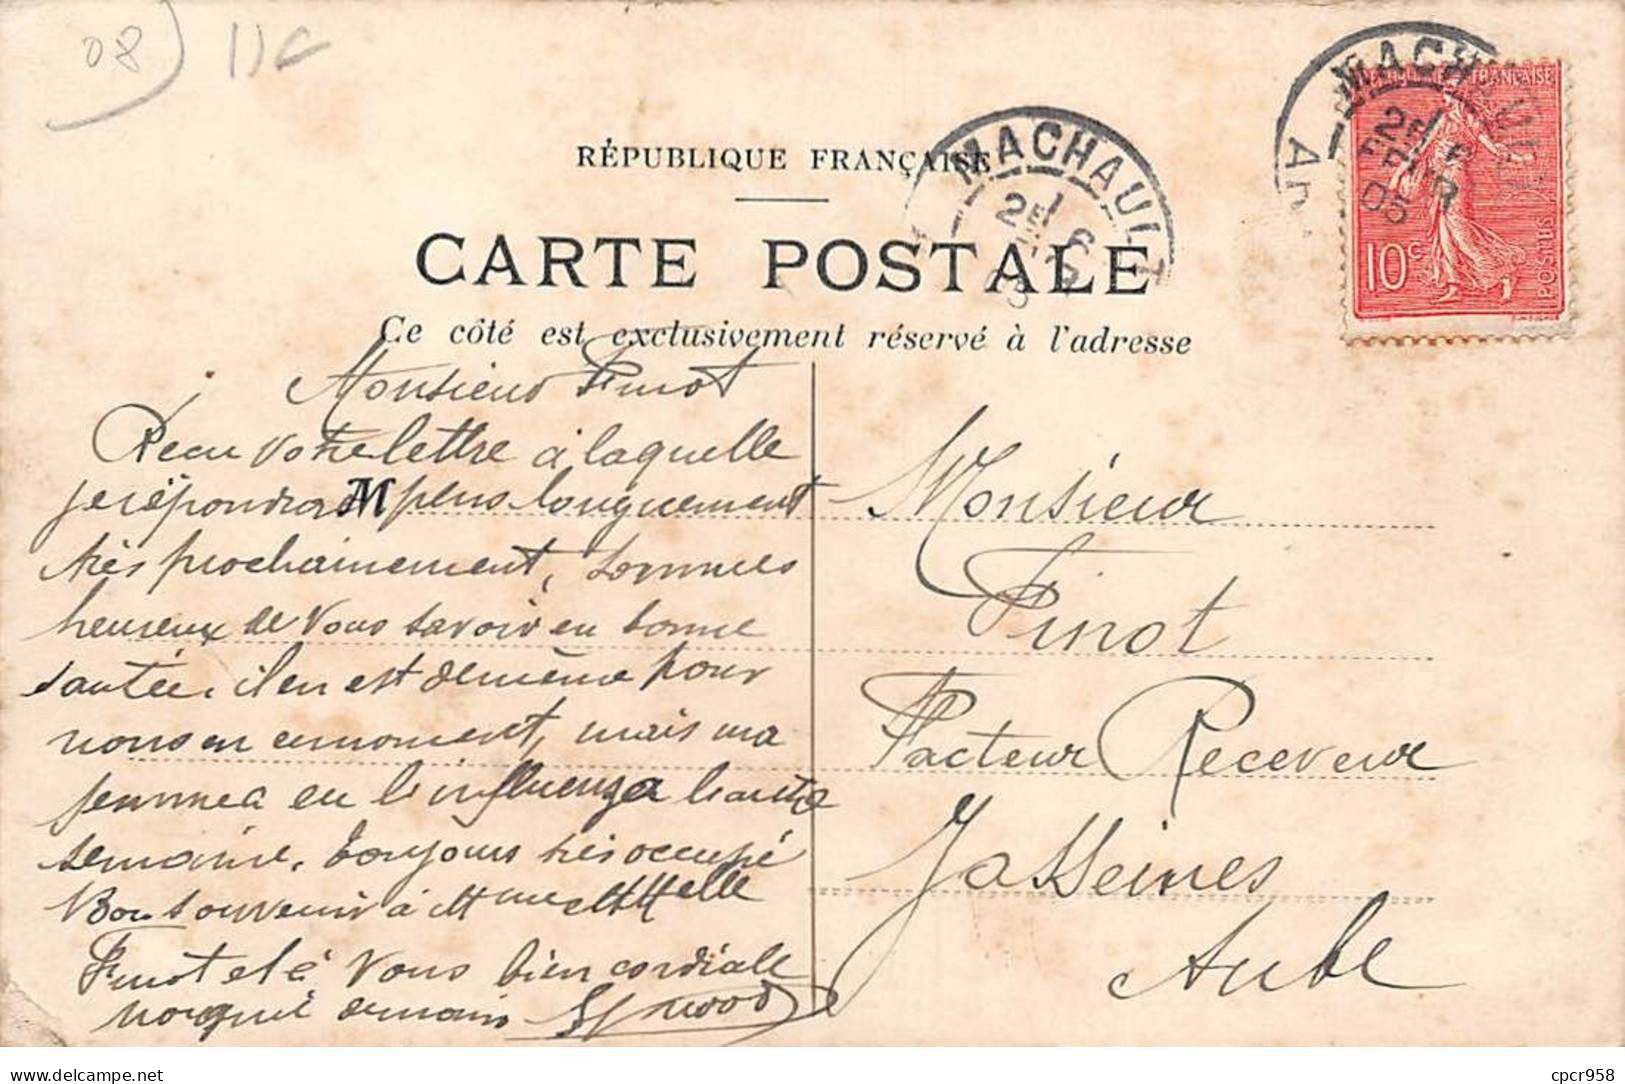 08
RÉPUBLIQUE FRANÇAISE
CARTE POSTALE
Ce côté est exclusivement réservé à l'adresse
MACHAULT
MACHAULT
FRANÇAISE
10c
POSTES
Monsieur Finot
Recu votre lettre à laquelle
je répondrai plus longuement
très prochainement, sommes
heureux de vous savoir en bonne
santée. il en est de même pour
nous en ce moment, mais ma
femme a eu l'influenza l'autre
semaine. toujours très occupé
Bon souvenir à Mme et Melle
Finot et à vous bien cordiale
poignée de main
Monsieur
Finot
Facteur Receveur
Jasseines
Aube
cpcr958